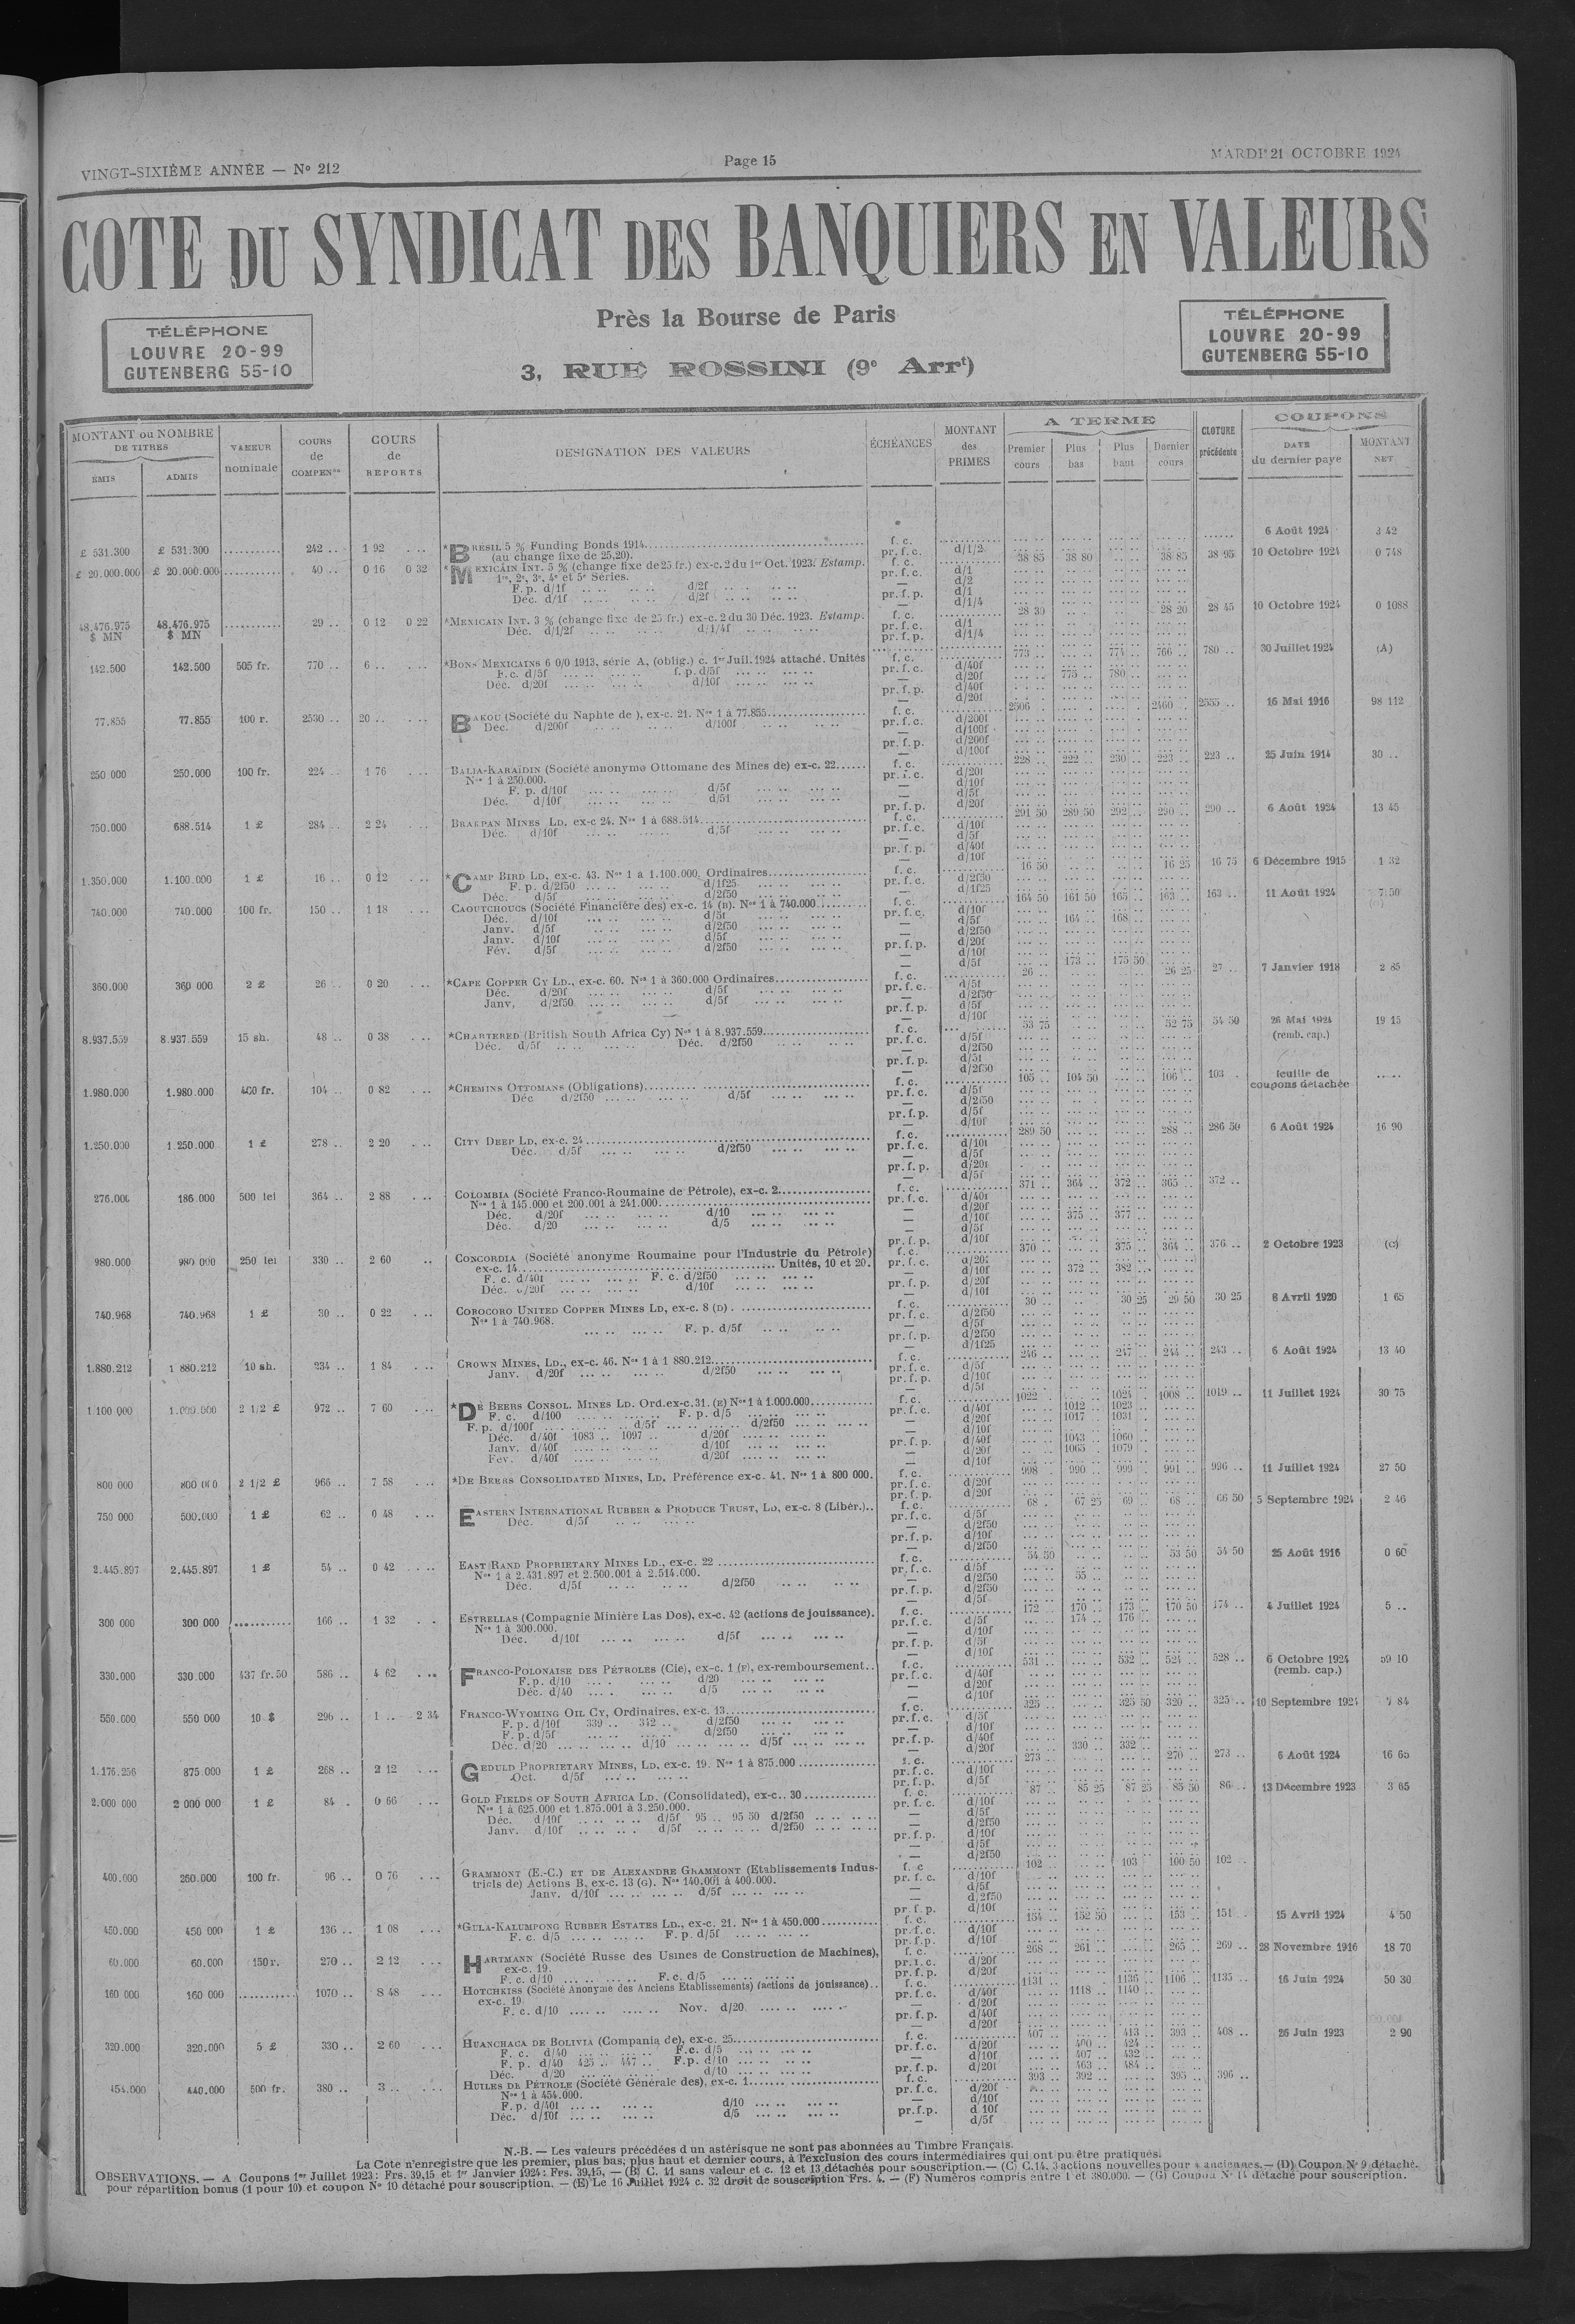 VINGT-SIXIÈME ANNÉE — No 212
Page 15
MARDI 21 OCTOBRE 1924
COTE DU SYNDICAT DES BANQUIERS EN VALEURS
Près la Bourse de Paris
3, RUE ROSSINI (9e Arrt)
TÉLÉPHONE
LOUVRE 20-99
GUTENBERG 55-10
TÉLÉPHONE
LOUVRE 20-99
GUTENBERG 55-10
MONTANT ou NOMBRE DE TITRES
ÉMIS
ADMIS
VALEUR nominale
COURS de COMPENon
COURS de REPORTS
DESIGNATION DES VALEURS
ÉCHÉANCES
MONTANT des PRIMES
A TERME
Premier cours
Plus bas
Plus haut
Dernier cours
CLOTURE précédente
COUPONS
DATE du dernier payé
MONTANT NET
£ 531.300 £ 531.300 .......... 242 .. 1 92 *BRÉSIL 5 % Funding Bonds 1914 f. c. 6 Août 1924 3 42
(au change fixe de 25,20). pr. f. c. d/1/2
£ 20.000.000 £ 20.000.000 .......... 40 .. 0 16 0 32 *MEXICAIN INT. 5 % (change fixe de 25 fr.) ex-c. 2 du 1er Oct. 1923. Estamp. f. c. 38 85 38 80 38 85 38 95 10 Octobre 1924 0 748
1re, 2e, 3e, 4e et 5e Séries. pr. f. c. d/1
F. p. d/1f d/2f — d/2
Déc. d/1f d/2f pr. f. p. d/1
— d/1/4
48.476.975 $ MN 48.476.975 $ MN .......... 29 .. 0 12 0 22 *MEXICAIN INT. 3 % (change fixe de 25 fr.) ex-c. 2 du 30 Déc. 1923. Estamp. f. c. 28 30 28 20 28 45 10 Octobre 1924 0 1088
Déc. d/1/2f d/1/4f pr. f. c. d/1
pr. f. p. d/1/4
142.500 142.500 505 fr. 770 .. 6 .. *BONS MEXICAINS 6 0/0 1913, série A, (oblig.) c. 1er Juil. 1924 attaché. Unités f. c. 773 .. 774 .. 766 .. 780 .. 30 Juillet 1924 (A)
F. c. d/5f f. p. d/5f pr. f. c. d/40f
Déc. d/20f d/10f — d/20f 775 .. 780 ..
pr. f. p. d/40f
— d/20f
77.855 77.855 100 r. 2530 .. 20 .. BAKOU (Société du Naphte de ), ex-c. 21. Nos 1 à 77.855 f. c. 2506 2460 .. 2555 .. 16 Mai 1916 98 112
Déc. d/200f d/100f pr. f. c. d/200f
— d/100f
pr. f. p. d/200f
— d/100f
250 000 250.000 100 fr. 224 .. 1 76 BALIA-KARAÏDIN (Société anonyme Ottomane des Mines de) ex-c. 22 f. c. 228 .. 222 .. 230 .. 223 .. 223 .. 25 Juin 1914 30 ..
Nos 1 à 250.000. pr. f. c. d/20f
F. p. d/10f d/5f — d/10f
Déc. d/10f d/5f — d/5f
pr. f. p. d/20f
750.000 688.514 1 £ 284 .. 2 24 BRAKPAN MINES LD. ex-c 24. Nos 1 à 688.514 f. c. 291 50 289 50 292 .. 290 .. 290 .. 6 Août 1924 13 45
Déc. d/10f d/5f pr. f. c. d/10f
— d/5f
pr. f. p. d/40f
— d/10f
1.350.000 1.100.000 1 £ 16 .. 0 12 *CAMP BIRD LD, ex-c. 43. Nos 1 à 1.100.000, Ordinaires f. c. 16 50 16 25 16 75 6 Décembre 1915 1 32
F. p. d/2f50 d/1f25 pr. f. c. d/2f50
Déc. d/5f d/2f50 — d/1f25
740.000 740.000 100 fr. 150 .. 1 18 CAOUTCHOUCS (Société Financière des) ex-c. 14 (B). Nos 1 à 740.000 f. c. 164 50 161 50 165 .. 163 .. 163 .. 11 Août 1924 7 50
Déc. d/10f d/5f pr. f. c. d/10f
Janv. d/5f d/2f50 — d/5f 164 .. 168 ..
Janv. d/10f d/5f — d/2f50
Fév. d/5f d/2f50 pr. f. p. d/20f
— d/10f
— d/5f 173 .. 175 50
360.000 360 000 2 £ 26 .. 0 20 *CAPE COPPER CY LD., ex-c. 60. Nos 1 à 360.000 Ordinaires f. c. 26 .. 26 25 27 .. 7 Janvier 1918 2 85
Déc. d/20f d/5f pr. f. c. d/5f
Janv. d/2f50 d/5f — d/2f50
pr. f. p. d/5f
— d/10f
8.937.559 8.937.559 15 sh. 48 .. 0 38 *CHARTERED (British South Africa Cy) Nos 1 à 8.937.559 f. c. 53 75 52 75 54 50 26 Mai 1924 (remb. cap.) 19 15
Déc. d/5f Déc. d/2f50 pr. f. c. d/5f
— d/2f50
pr. f. p. d/5f
— d/2f50
1.980.000 1.980.000 400 fr. 104 .. 0 82 *CHEMINS OTTOMANS (Obligations) f. c. 105 .. 104 50 106 .. 103 . feuille de coupons détachée .....
Déc d/2f50 d/5f pr. f. c. d/5f
— d/2f50
pr. f. p. d/5f
— d/10f
1.250.000 1.250.000 1 £ 278 .. 2 20 CITY DEEP LD, ex-c. 24 f. c. 289 50 288 .. 286 50 6 Août 1924 16 90
Déc. d/5f d/2f50 pr. f. c. d/10f
— d/5f
pr. f. p. d/20f
— d/5f
276.000 186.000 500 lei 364 .. 2 88 COLOMBIA (Société Franco-Roumaine de Pétrole), ex-c. 2 f. c. 371 .. 364 .. 372 .. 365 .. 372 ..
Nos 1 à 145.000 et 200.001 à 241.000 pr. f. c. d/40f
Déc. d/20f d/10 — d/20f
Déc. d/20 d/5 — d/10f 375 .. 377 ..
— d/5f
pr. f. p. d/10f
980.000 980 000 250 lei 330 .. 2 60 CONCORDIA (Société anonyme Roumaine pour l'Industrie du Pétrole) f. c. 370 .. 375 .. 364 .. 376 .. 2 Octobre 1923 (C)
ex-c. 14 Unités, 10 et 20. pr. f. c. d/20f
F. c. d/40f F. c. d/2f50 — d/10f 372 .. 382 ..
Déc. d/20f d/10f pr. f. p. d/20f
— d/10f
740.968 740.968 1 £ 30 .. 0 22 COROCORO UNITED COPPER MINES LD, ex-c. 8 (D) f. c. 30 .. 30 25 29 50 30 25 8 Avril 1920 1 65
Nos 1 à 740.968. pr. f. c. d/2f50
F. p. d/5f — d/5f
pr. f. p. d/2f50
— d/1f25
1.880.212 1 880.212 10 sh. 234 .. 1 84 CROWN MINES, LD., ex-c. 46. Nos 1 à 1 880.212 f. c. 246 .. 247 .. 244 .. 243 .. 6 Août 1924 13 40
Janv. d/20f d/2f50 pr. f. c. d/5f
pr. f. p. d/10f
— d/5f
1 100 000 1.000.000 2 1/2 £ 972 .. 7 60 *DE BEERS CONSOL. MINES LD. Ord. ex-c. 31. (E) Nos 1 à 1.000.000 f. c. 1022 .. 1024 .. 1008 .. 1019 .. 11 Juillet 1924 30 75
F. c. d/100 F. p. d/5 pr. f. c. d/40f 1012 .. 1023 ..
F. p. d/100f d/5f d/2f50 — d/20f 1017 .. 1031 .
Déc. d/40f 1083 .. 1097 .. d/20f — d/10f
Janv. d/40f d/10f pr. f. p. d/40f 1043 .. 1060 ..
Fév. d/40f d/20f — d/20f 1065 .. 1079 ..
— d/10f
800 000 800 000 2 1/2 £ 966 .. 7 58 *DE BEERS CONSOLIDATED MINES, LD. Préférence ex-c. 41. Nos 1 à 800 000. f. c. 998 . 990 .. 999 .. 991 .. 996 .. 11 Juillet 1924 27 50
pr. f. c. d/20f
pr. f. p. d/20f
750 000 500.000 1 £ 62 .. 0 48 EASTERN INTERNATIONAL RUBBER & PRODUCE TRUST, LD, ex-c. 8 (Libér.) f. c. 68 . 67 25 69 .. 68 .. 66 50 5 Septembre 1924 2 46
Déc. d/5f pr. f. c. d/5f
— d/2f50
pr. f. p. d/10f
— d/2f50
2.445.897 2.445.897 1 £ 54 .. 0 42 EAST RAND PROPRIETARY MINES LD., ex-c. 22 f. c. 54 50 53 50 54 50 25 Août 1916 0 60
Nos 1 à 2.431.897 et 2.500.001 à 2.514.000. pr. f. c. d/5f
Déc. d/5f d/2f50 — d/2f50 55 ..
pr. f. p. d/2f50
— d/5f
300 000 300 000 .......... 166 .. 1 32 ESTRELLAS (Compagnie Minière Las Dos), ex-c. 42 (actions de jouissance). f. c. 172 .. 170 .. 173 .. 170 50 174 .. 4 Juillet 1924 5 ..
Nos 1 à 300.000. pr. f. c. d/5f 174 .. 176 ..
Déc. d/10f d/5f — d/10f
pr. f. p. d/5f
— d/10f
330.000 330 000 437 fr. 50 586 .. 4 62 FRANCO-POLONAISE DES PÉTROLES (Cie), ex-c. 1 (F), ex-remboursement f. c. 531 .. 532 .. 524 .. 528 .. 6 Octobre 1924 (remb. cap.) 59 10
F. p. d/10 d/20 pr. f. c. d/40f
Déc. d/40 d/5 — d/20f
— d/10f
550.000 550 000 10 $ 296 .. 1 .. 2 34 FRANCO-WYOMING OIL CY, Ordinaires, ex-c. 13 f. c. 325 .. 325 50 320 .. 325 .. 10 Septembre 1924 7 84
F. p. d/10f 339 .. 342 .. d/2f50 pr. f. c. d/5f
F. p. d/5f d/2f50 — d/10f
Déc. d/20 d/10 d/5f pr. f. p. d/40f
— d/20f 330 .. 332 ..
1.176.256 875.000 1 £ 268 .. 2 12 GEDULD PROPRIETARY MINES, LD, ex-c. 19. Nos 1 à 875.000 f. c. 273 .. 270 .. 273 .. 6 Août 1924 16 65
Oct. d/5f pr. f. c. d/10f
pr. f. p. d/5f
2.000 000 2 000 000 1 £ 84 . 0 66 GOLD FIELDS OF SOUTH AFRICA LD. (Consolidated), ex-c. 30 f. c. 87 .. 85 25 87 25 85 50 86 .. 13 Décembre 1923 3 65
Nos 1 à 625.000 et 1.875.001 à 3.250.000. pr. f. c. d/10f
Déc. d/10f d/5f 95 .. 95 50 d/2f50 — d/5f
Janv. d/10f d/5f d/2f50 — d/2f50
pr. f. p. d/10f
— d/5f
— d/2f50
400.000 260.000 100 fr. 96 .. 0 76 GRAMMONT (E.-C.) ET DE ALEXANDRE GRAMMONT (Etablissements Indus- f. c 102 .. 103 100 50 102 .
triels de) Actions B, ex-c. 13 (G). Nos 140.001 à 400.000. pr. f. c. d/10f
Janv. d/10f d/5f — d/5f
— d/2f50
pr. f. p. d/10f
450.000 450 000 1 £ 136 .. 1 08 *GULA-KALUMPONG RUBBER ESTATES LD., ex-c. 21. Nos 1 à 450.000 f. c. 154 .. 152 50 153 .. 151 . 15 Avril 1924 4 50
F. c. d/5 F. p. d/5f pr. f. c. d/10f
pr. f. p. d/10f
60.000 60.000 150 r. 270 .. 2 12 HARTMANN (Société Russe des Usines de Construction de Machines), f. c. 268 .. 261 .. 265 .. 269 .. 28 Novembre 1916 18 70
ex-c. 19. pr. f. c. d/20f
F. c. d/10 F. c. d/5 pr. f. p. d/20f
160 000 160 000 .......... 1070 .. 8 48 HOTCHKISS (Société Anonyme des Anciens Etablissements) (actions de jouissance) f. c. 1131 .. 1136 .. 1106 .. 1135 .. 16 Juin 1924 50 30
ex-c. 19. pr. f. c. d/40f 1118 .. 1140 ..
F. c. d/10 Nov. d/20 — d/20f
pr. f. p. d/40f
— d/20f
320.000 320.000 5 £ 330 .. 2 60 HUANCHACA DE BOLIVIA (Compania de), ex-c. 25 f. c. 407 .. 413 .. 393 .. 408 .. 26 Juin 1923 2 90
F. c. d/40 F.c. d/5 pr. f. c. d/20f 400 .. 424 ..
F. p. d/40 425 .. 447 .. F.p. d/10 — d/10f 407 .. 432 ..
Déc. d/20 d/10 pr. f. p. d/20f 463 .. 484 ..
454.000 440.000 500 fr. 380 .. 3 .. HUILES DE PÉTROLE (Société Générale des), ex-c. 1 f. c. 393 .. 392 .. 395 .. 396 ..
Nos 1 à 454.000. pr. f. c. d/20f
F. p. d/40f d/10 — d/10f
Déc. d/10f d/5 pr. f. p. d 10f
— d/5f
N.-B. — Les valeurs précédées d un astérisque ne sont pas abonnées au Timbre Français.
La Cote n'enregistre que les premier, plus bas, plus haut et dernier cours, à l'exclusion des cours intermédiaires qui ont pu être pratiqués.
OBSERVATIONS. — A Coupons 1er Juillet 1923 : Frs. 39,15 et 1er Janvier 1924 : Frs. 39,15, — (B) C. 11 sans valeur et c. 12 et 13 détachés pour souscription. — (C) C.14. 3 actions nouvelles pour 4 anciennes. — (D) Coupon No 9 détaché.
pour répartition bonus (1 pour 10) et coupon No 10 détaché pour souscription. — (E) Le 16 Juillet 1924 c. 32 droit de souscription Frs. 4. — (F) Numéros compris entre 1 et 380.000. — (G) Coupon No 14 détaché pour souscription.